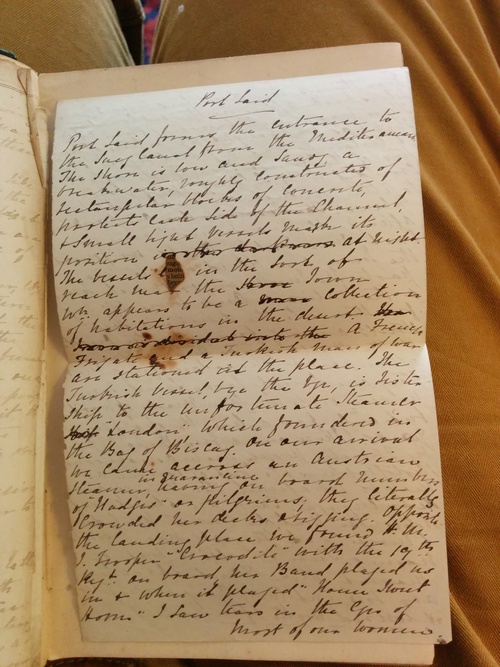 Port Said
Port Said forms the entrance to
the Suez Canal from the Mediterranean
The Shore is low and Sandy, a
breakwater, roughly constructed of
rectangular blocks of concrete,
protects each side of the Channel,
& Small light vessels mark its
position at night.
The vessels in the sort of
reach near the Town
wh. appears to be a collection
of habitations in the desert
A French
Frigate and a Turkish Man of War
are stationed at the place. The
Turkish Vessel, bye the bye, is Sister
Ship to the unfortunate Steamer
"London" which foundered in
the Bay of Biscay. On our arrival
we came accross an Austrian
in quarantine
Steamer, having on board numbers
of "Hadges" or pilgrims, they literally
Crowded her decks & rigging. Opposite
the landing place we found H.M.
I. Trooper "Crocodile" with the 109th
Regt on board her Band played us
in & when it played "Home Sweet
Home" I saw tears in the Eyes of
most of our women.